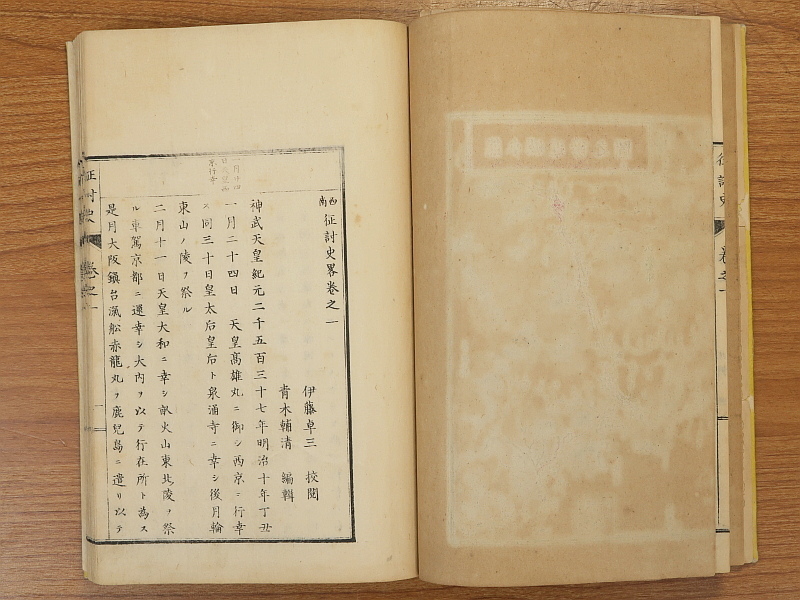 西南征討史略卷之一
伊藤卓三 校閲
青木輔清 編輯
神武天皇紀元二千五百三十七年明治十年丁丑
一月二十四日 天皇高雄丸ニ御シ西京ニ行幸
ス同三十日皇太后皇后ト泉涌寺ニ幸シ後月輪
東山ノ陵ヲ祭ル
二月十一日天皇大和ニ幸シ畝火山東北陵ヲ祭
ル車駕京都ニ還幸シ大内ヲ以テ行在所ト為ス
是月大阪鎮台滊船赤龍丸ヲ鹿児島ニ遣リ以テ
征討史
卷之一
征討史
卷之一